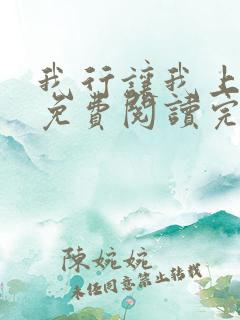 我行讓我上
免費閱讀完
陳婉婉
未经同意禁止转载